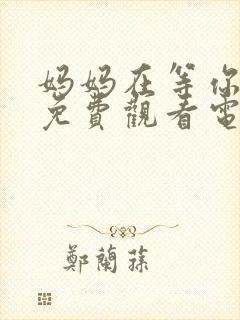 妈妈在等你
免費觀看電
鄭蘭蓀